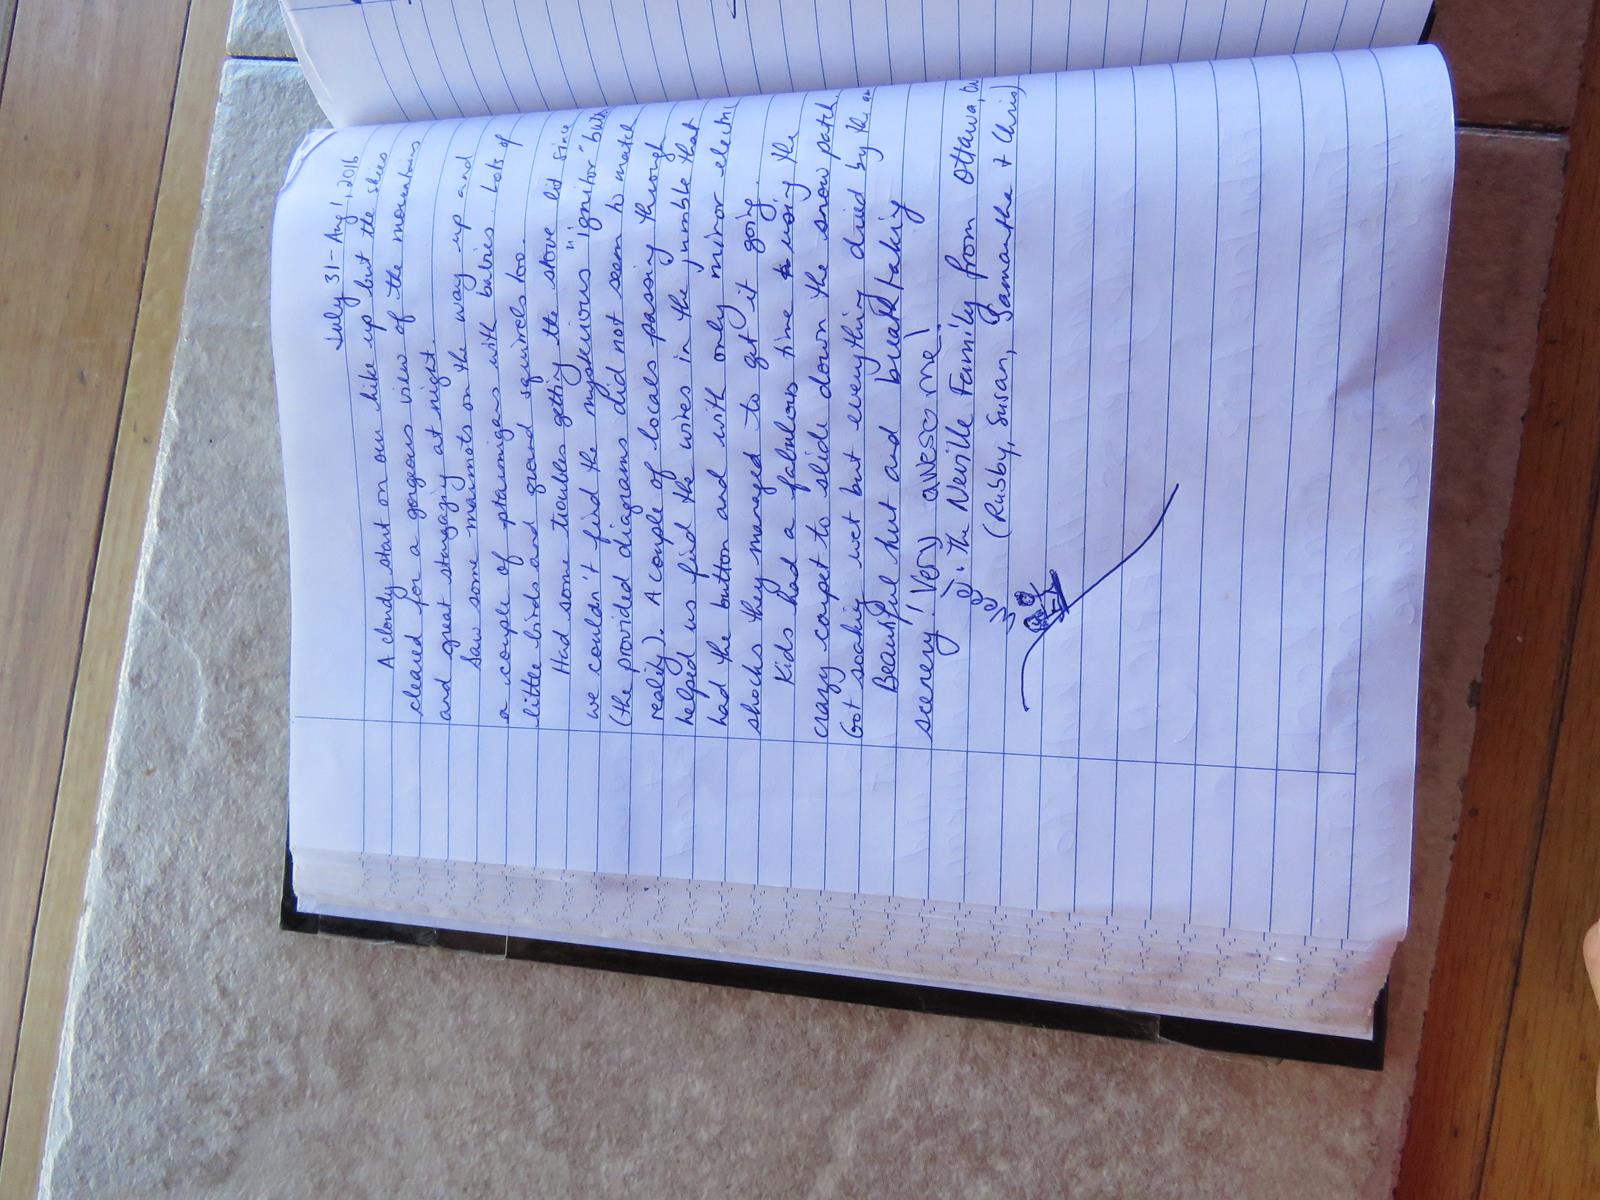 July 31 - Aug 1, 2016
A cloudy start on our hike up but the skies
cleared for a gorgeous view of the mountains
and great stargazing at night.
Saw some marmots on the way up and
a couple of ptarmigans with babies. Lots of
little birds and ground squirrels too.
Had some troubles getting the stove lit since
we couldn't find the mysterious "ignitor" button
(the provided diagrams did not seem to match
reality). A couple of locals passing through
helped us find the wires in the jumble that
had the button and with only minor electric
shocks they managed to get it going.
Kids had a fabulous time using the
crazy carpet to slide down the snow patch.
Got soaking wet but everything dried by the
Beautiful hut and breathtaking
scenery! Very awesome!
The Neville Family from Ottawa, On
(Rubby, Susan, Samantha + Chris)